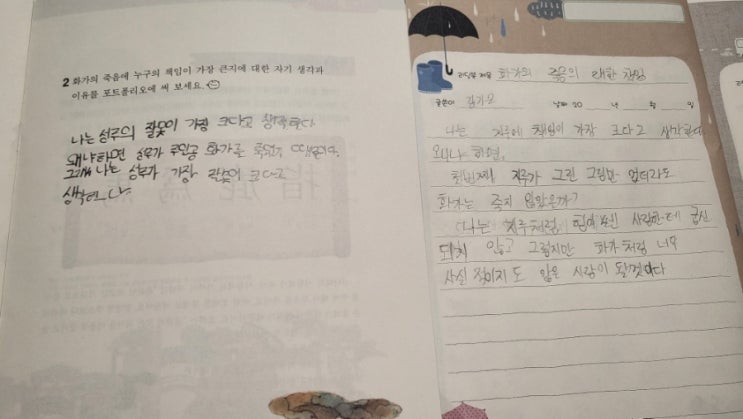 2 화가의 죽음에 누구의 책임이 가장 큰지에 대한 자기 생각과
이유를 포트폴리오에 써 보세요.
나는 성주의 잘못이 가장 크다고 생각한다.
왜냐하면 성주가 주인공 화가를 죽였기 때문이다.
그래서 나는 성주가 가장 잘못이 크다고
생각한다.
화가의 죽음의 대한 책임
글쓴이 날짜 20 년 월 일
나는 책임이 가장 크다고 생각한다
왜냐하면,
첫번째 그린 그림만 없더라도
화가는 죽지 않았을까?
나는 힘이 쎈 사람한테 굽신
되지 않고 그렇지만 화가처럼 너무
사실 적이지도 않은 사람이 될것이다